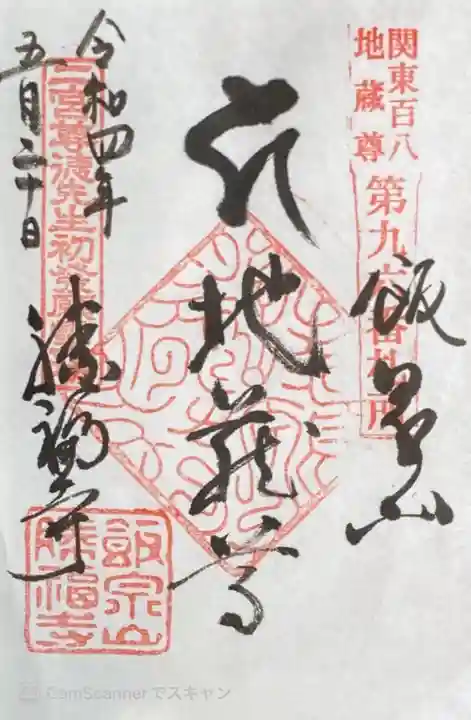 関東百八
地蔵尊
第九
番札所
飯泉山
地蔵尊
二宮尊徳先生初発願
令和四年
五月二十日
勝福寺
飯泉山
勝福寺
CamScannerでスキャン